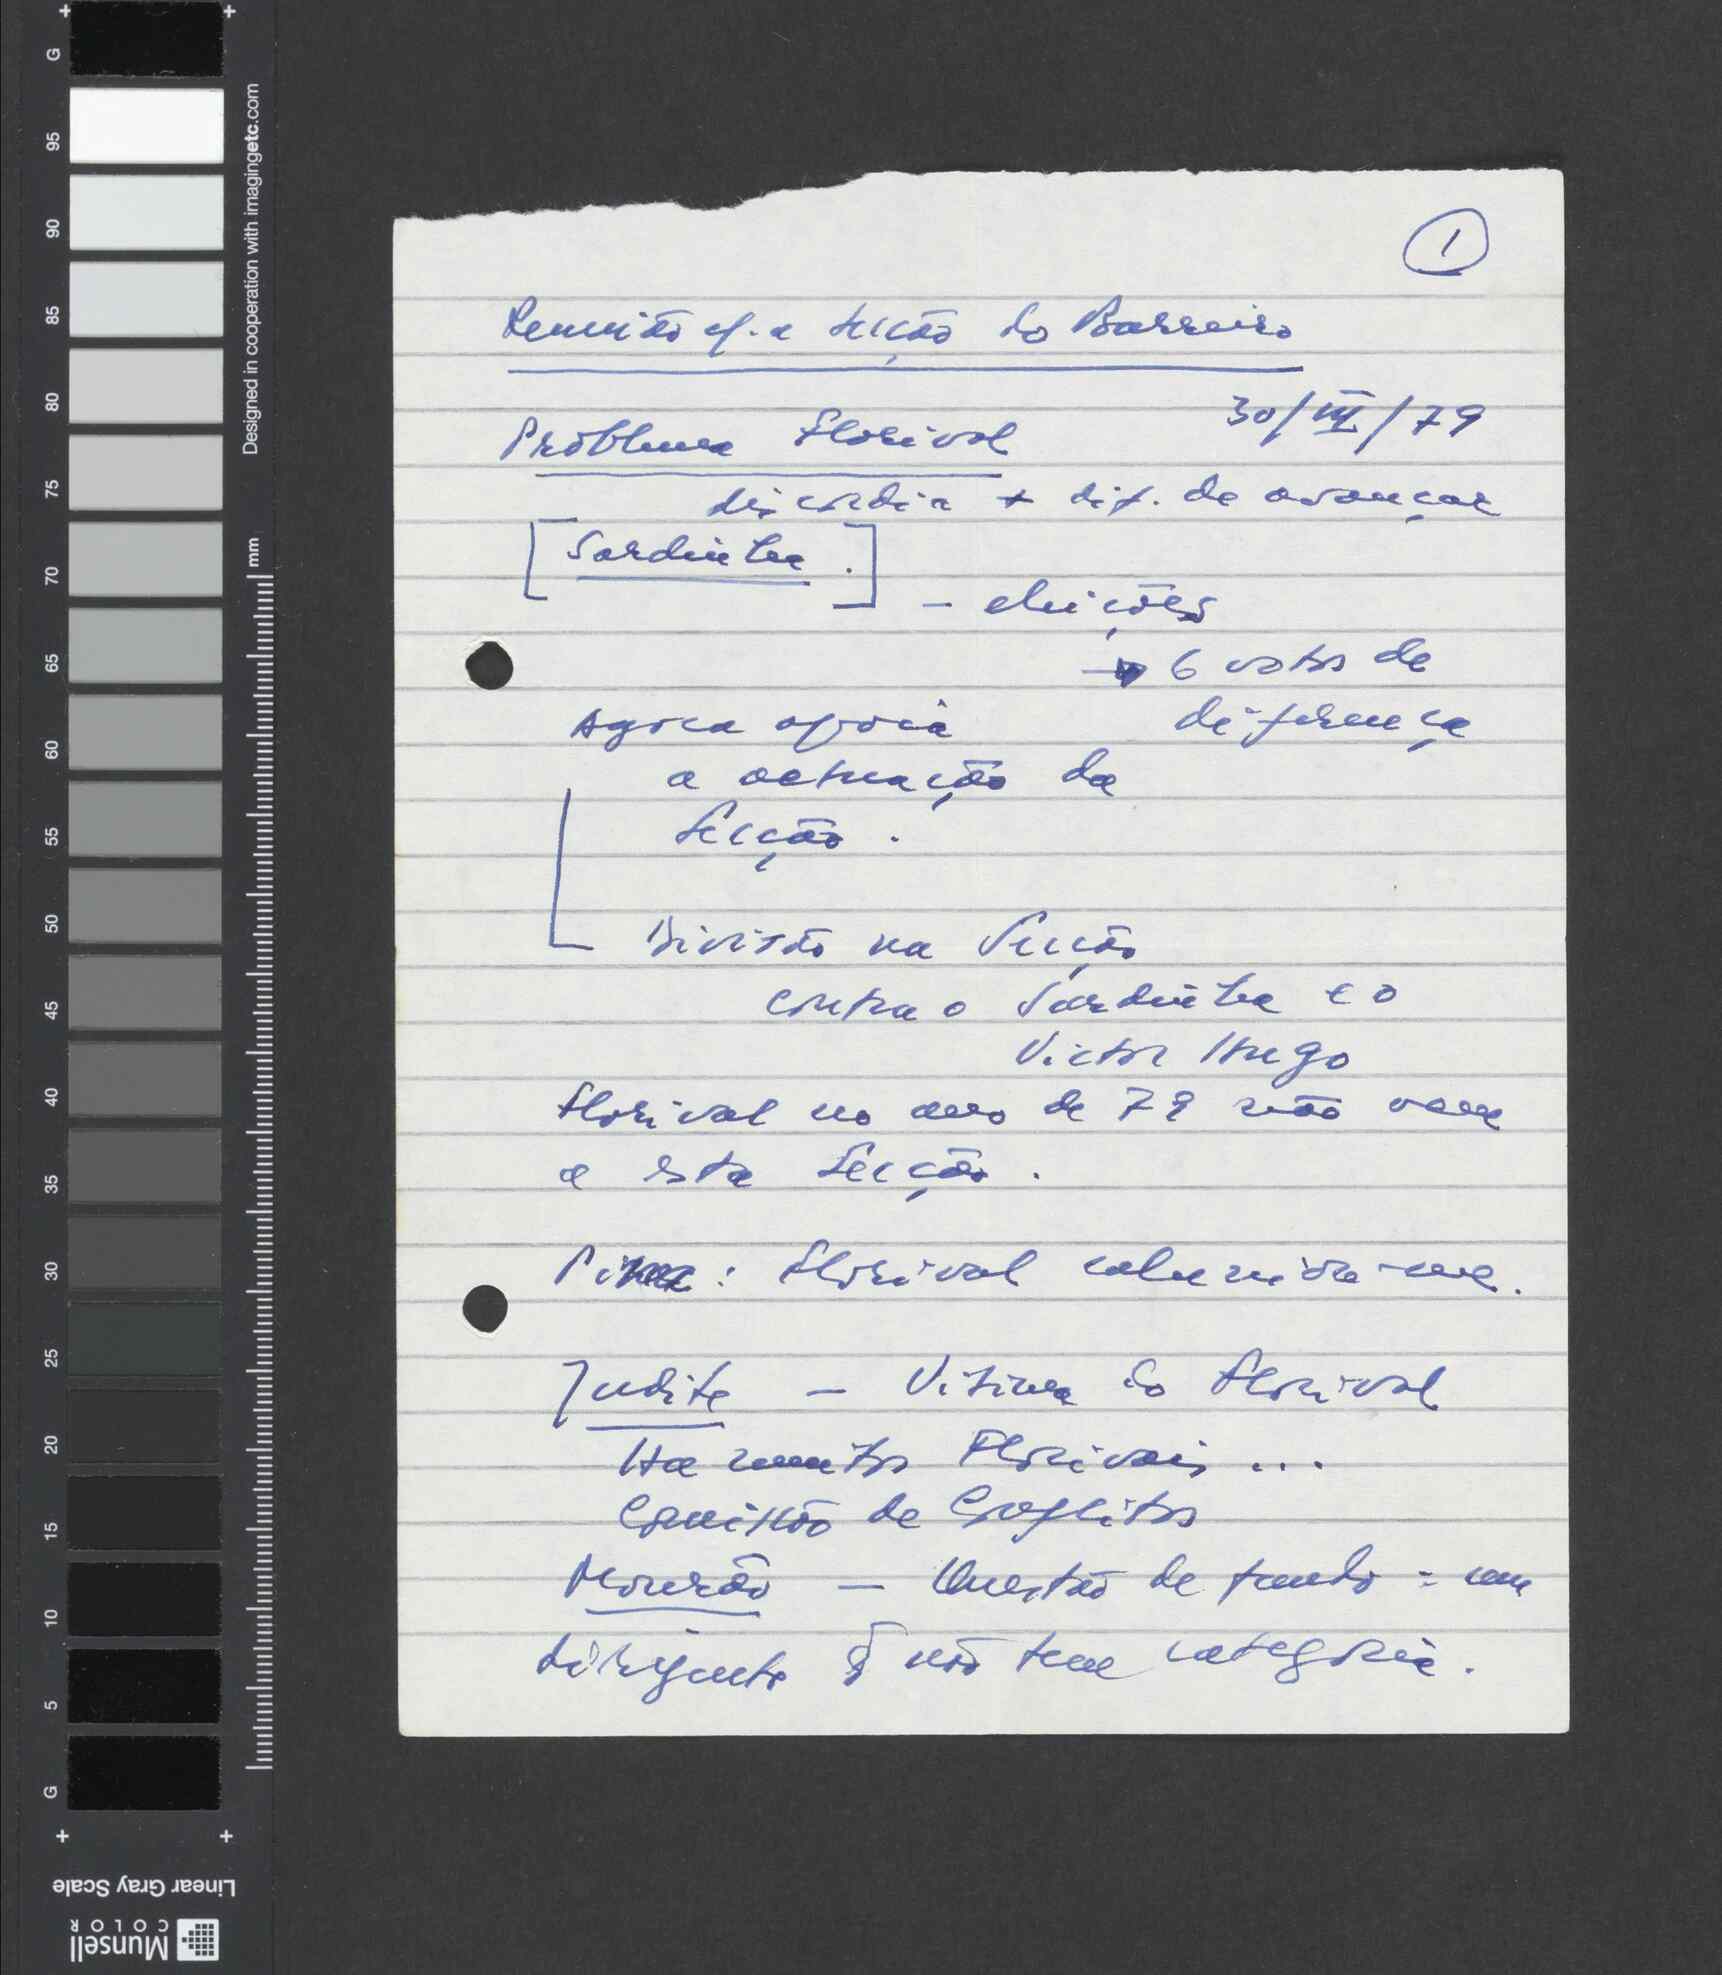 1
Reunião c/. a secção do Barreiro
30/III/79
Problema Florival
discordia + dif. de avançar
[Sardinha.]
- eleições
→ 6 votos de
diferença
Agora apoia
a actuação da
Secção.
Divisão na Secção
contra o Sardinha e o
Victor Hugo
Florival no ano de 79 não vem
a esta Secção.
: Florival calunia-me.
Judite - Vitima do Florival
Ha muitos Florivais...
Comissão de Conflitos
Mourão - Questão de fundo: um
dirigente q não tem categoria.
G
95
90
85
80
75
70
65
60
55
50
45
40
35
30
25
20
15
10
5
G
mm
Designed in cooperation with imagingetc.com
Linear Gray Scale
Munsell
COLOR